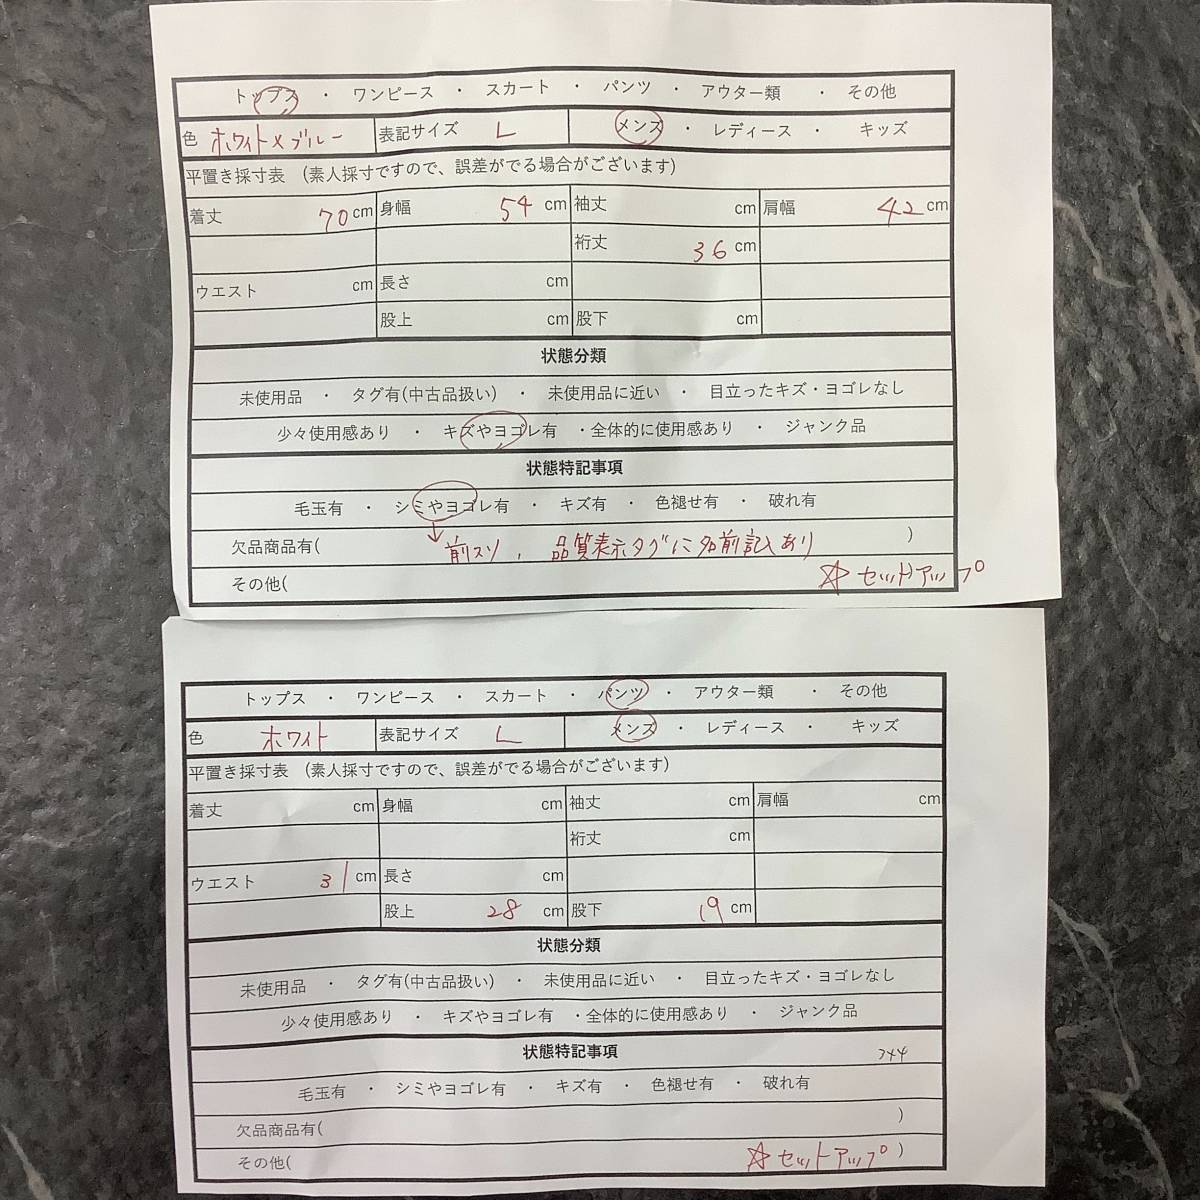 トップス ・ ワンピース ・ スカート ・ パンツ ・ アウター類 ・ その他
色 ホワイト×ブルー 表記サイズ L メンズ ・ レディース ・ キッズ
平置き採寸表 (素人採寸ですので、誤差がでる場合がございます)
着丈 70 cm 身幅 54 cm 袖丈 cm 肩幅 42 cm
裄丈 36 cm
ウエスト cm 長さ cm
股上 cm 股下 cm
状態分類
未使用品 ・ タグ有(中古品扱い) ・ 未使用品に近い ・ 目立ったキズ・ヨゴレなし
少々使用感あり ・ キズやヨゴレ有 ・全体的に使用感あり ・ ジャンク品
状態特記事項
毛玉有 ・ シミやヨゴレ有 ・ キズ有 ・ 色褪せ有 ・ 破れ有
欠品商品有( ↓前スソ, 品質表示タグに名前記入あり )
その他( ☆ セットアップ
トップス ・ ワンピース ・ スカート ・ パンツ ・ アウター類 ・ その他
色 ホワイト 表記サイズ L メンズ ・ レディース ・ キッズ
平置き採寸表 (素人採寸ですので、誤差がでる場合がございます)
着丈 cm 身幅 cm 袖丈 cm 肩幅 cm
裄丈 cm
ウエスト 31 cm 長さ cm
股上 28 cm 股下 19 cm
状態分類
未使用品 ・ タグ有(中古品扱い) ・ 未使用品に近い ・ 目立ったキズ・ヨゴレなし
少々使用感あり ・ キズやヨゴレ有 ・全体的に使用感あり ・ ジャンク品
状態特記事項
毛玉有 ・ シミやヨゴレ有 ・ キズ有 ・ 色褪せ有 ・ 破れ有
欠品商品有( )
その他( ☆ セットアップ )